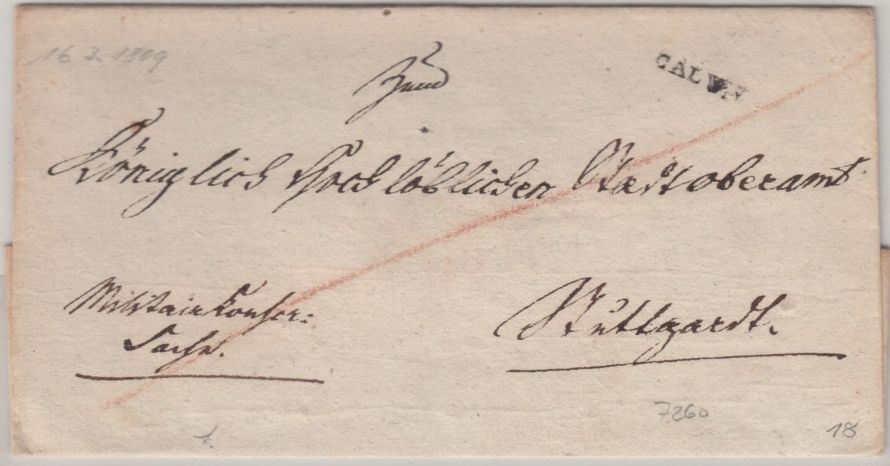 16. 3. 1809
CALW
Zum
Königlich Hochlöblichen Stadtoberamt
Militairkonscr:
Sache.
Stuttgardt.
7260
1.
18